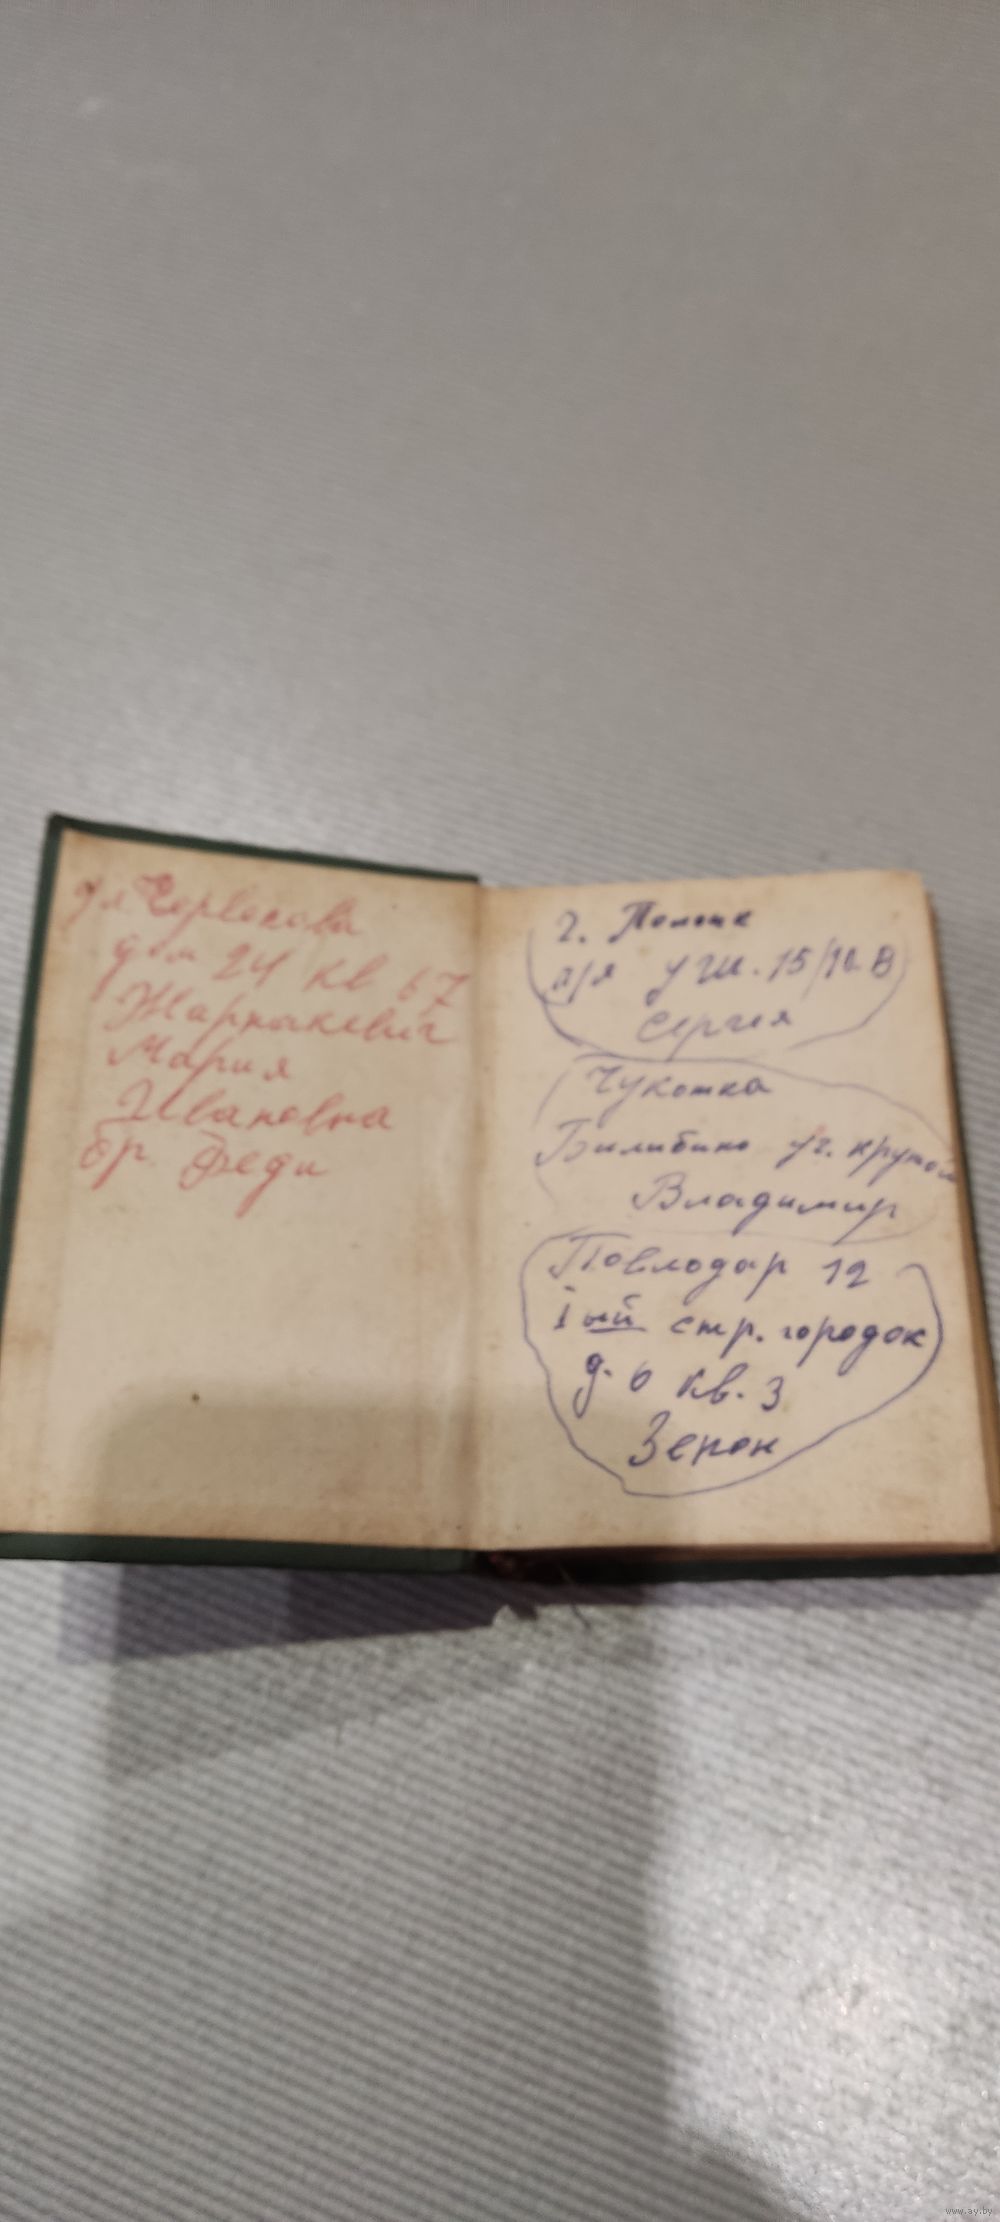 ул. Червякова
дом 24 кв 67
Жарнакевич
Мария
Ивановна
бр. Феди
г. Полоцк
п/я УЖ. 15/10. В
Сергея
Чукотка
Билибино уч. крутом
Владимир
Повлодар 12
1ый стр. городок
д. 6 кв. 3
www.ay.by